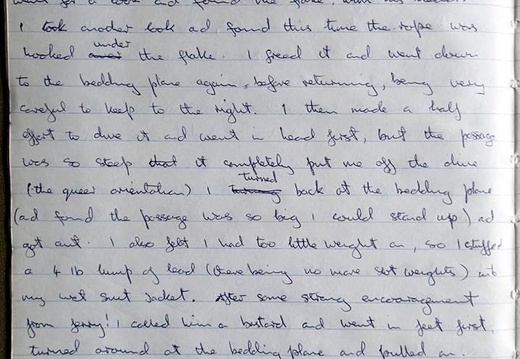 went for a look and found the flake, with his
I took another look ad found this time the rope was
hooked over under the flake. I freed it and went down
to the bedding plane again, before returning, being very
careful to keep to the right. I then made a half
effort to dive it ad went in head first, but the passage
was so steep that it completely put me off the dive
(the queer orientation) I turned back at the bedding plane
(ad found the passage was so big I could stand up) ad
got out. I also felt I had too little weight on, so I stuffed
a 4 lb lump of lead (there being no more slot weights) into
my wet suit jacket. After some strong encouragement
from Jerry! I called him a bastard and went in feet first,
turned around at the bedding plane and pulled on.